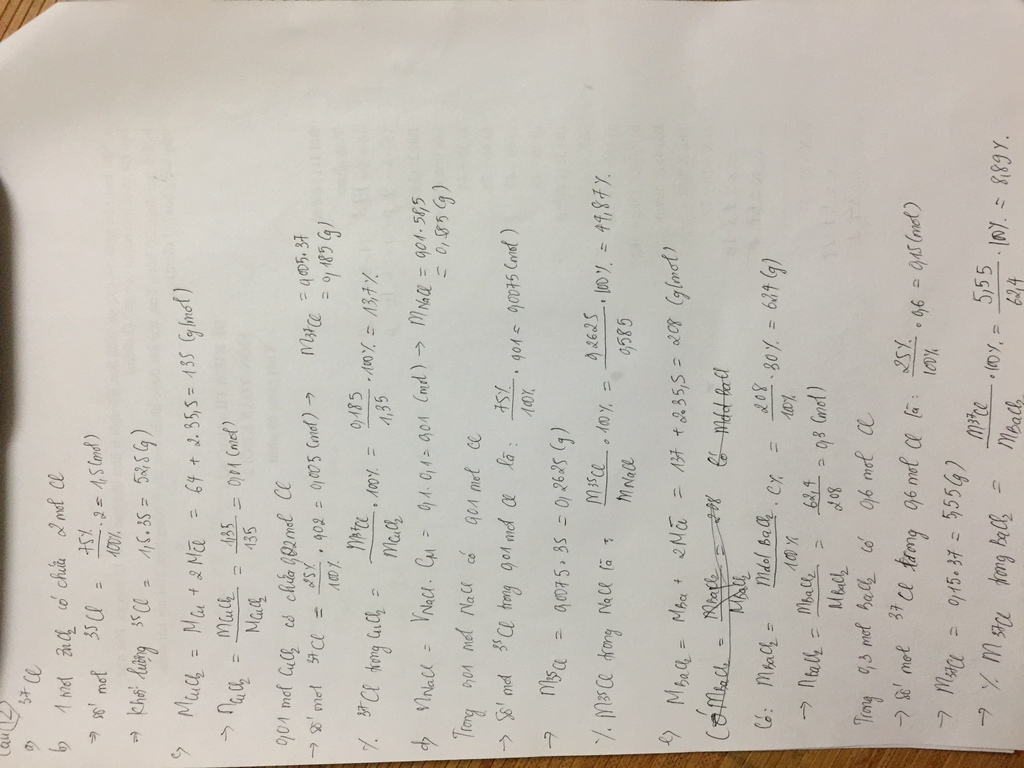 Câu 12
a) 37Cl
b) 1 mol ZnCl2 có chứa 2 mol Cl
⇒ số mol 35Cl = 75%/100% . 2 = 1,5 (mol)
⇒ Khối lượng 35Cl = 1,5 . 35 = 52,5 (g)
c) MCuCl2 = MCu + 2MCl = 64 + 2.35,5 = 135 (g/mol)
→ nCuCl2 = mCuCl2/MCuCl2 = 1,35/135 = 0,01 (mol)
0,01 mol CuCl2 có chứa 0,02 mol Cl
→ số mol 37Cl = 25%/100% . 0,02 = 0,005 (mol) → m37Cl = 0,005.37 = 0,185 (g)
% 37Cl trong CuCl2 = m37Cl/mCuCl2 . 100% = 0,185/1,35 . 100% = 13,7%
d) nNaCl = VNaCl . CM = 0,1.0,1 = 0,01 (mol) → mNaCl = 0,01.58,5 = 0,585 (g)
Trong 0,01 mol NaCl có 0,01 mol Cl
→ Số mol 35Cl trong 0,01 mol Cl là: 75%/100% . 0,01 = 0,0075 (mol)
→ m35Cl = 0,0075.35 = 0,2625 (g)
% m35Cl trong NaCl là: m35Cl/mNaCl . 100% = 0,2625/0,585 . 100% = 44,87%
e) MBaCl2 = MBa + 2MCl = 137 + 2.35,5 = 208 (g/mol)
Có: mBaCl2 = mdd BaCl2/100% . C% = 208/100% . 30% = 62,4 (g)
→ nBaCl2 = mBaCl2/MBaCl2 = 62,4/208 = 0,3 (mol)
Trong 0,3 mol BaCl2 có 0,6 mol Cl
→ Số mol 37Cl trong 0,6 mol Cl là: 25%/100% . 0,6 = 0,15 (mol)
→ m37Cl = 0,15.37 = 5,55 (g)
→ % m 37Cl trong BaCl2 = m37Cl/mBaCl2 . 100% = 5,55/62,4 . 100% = 8,89%